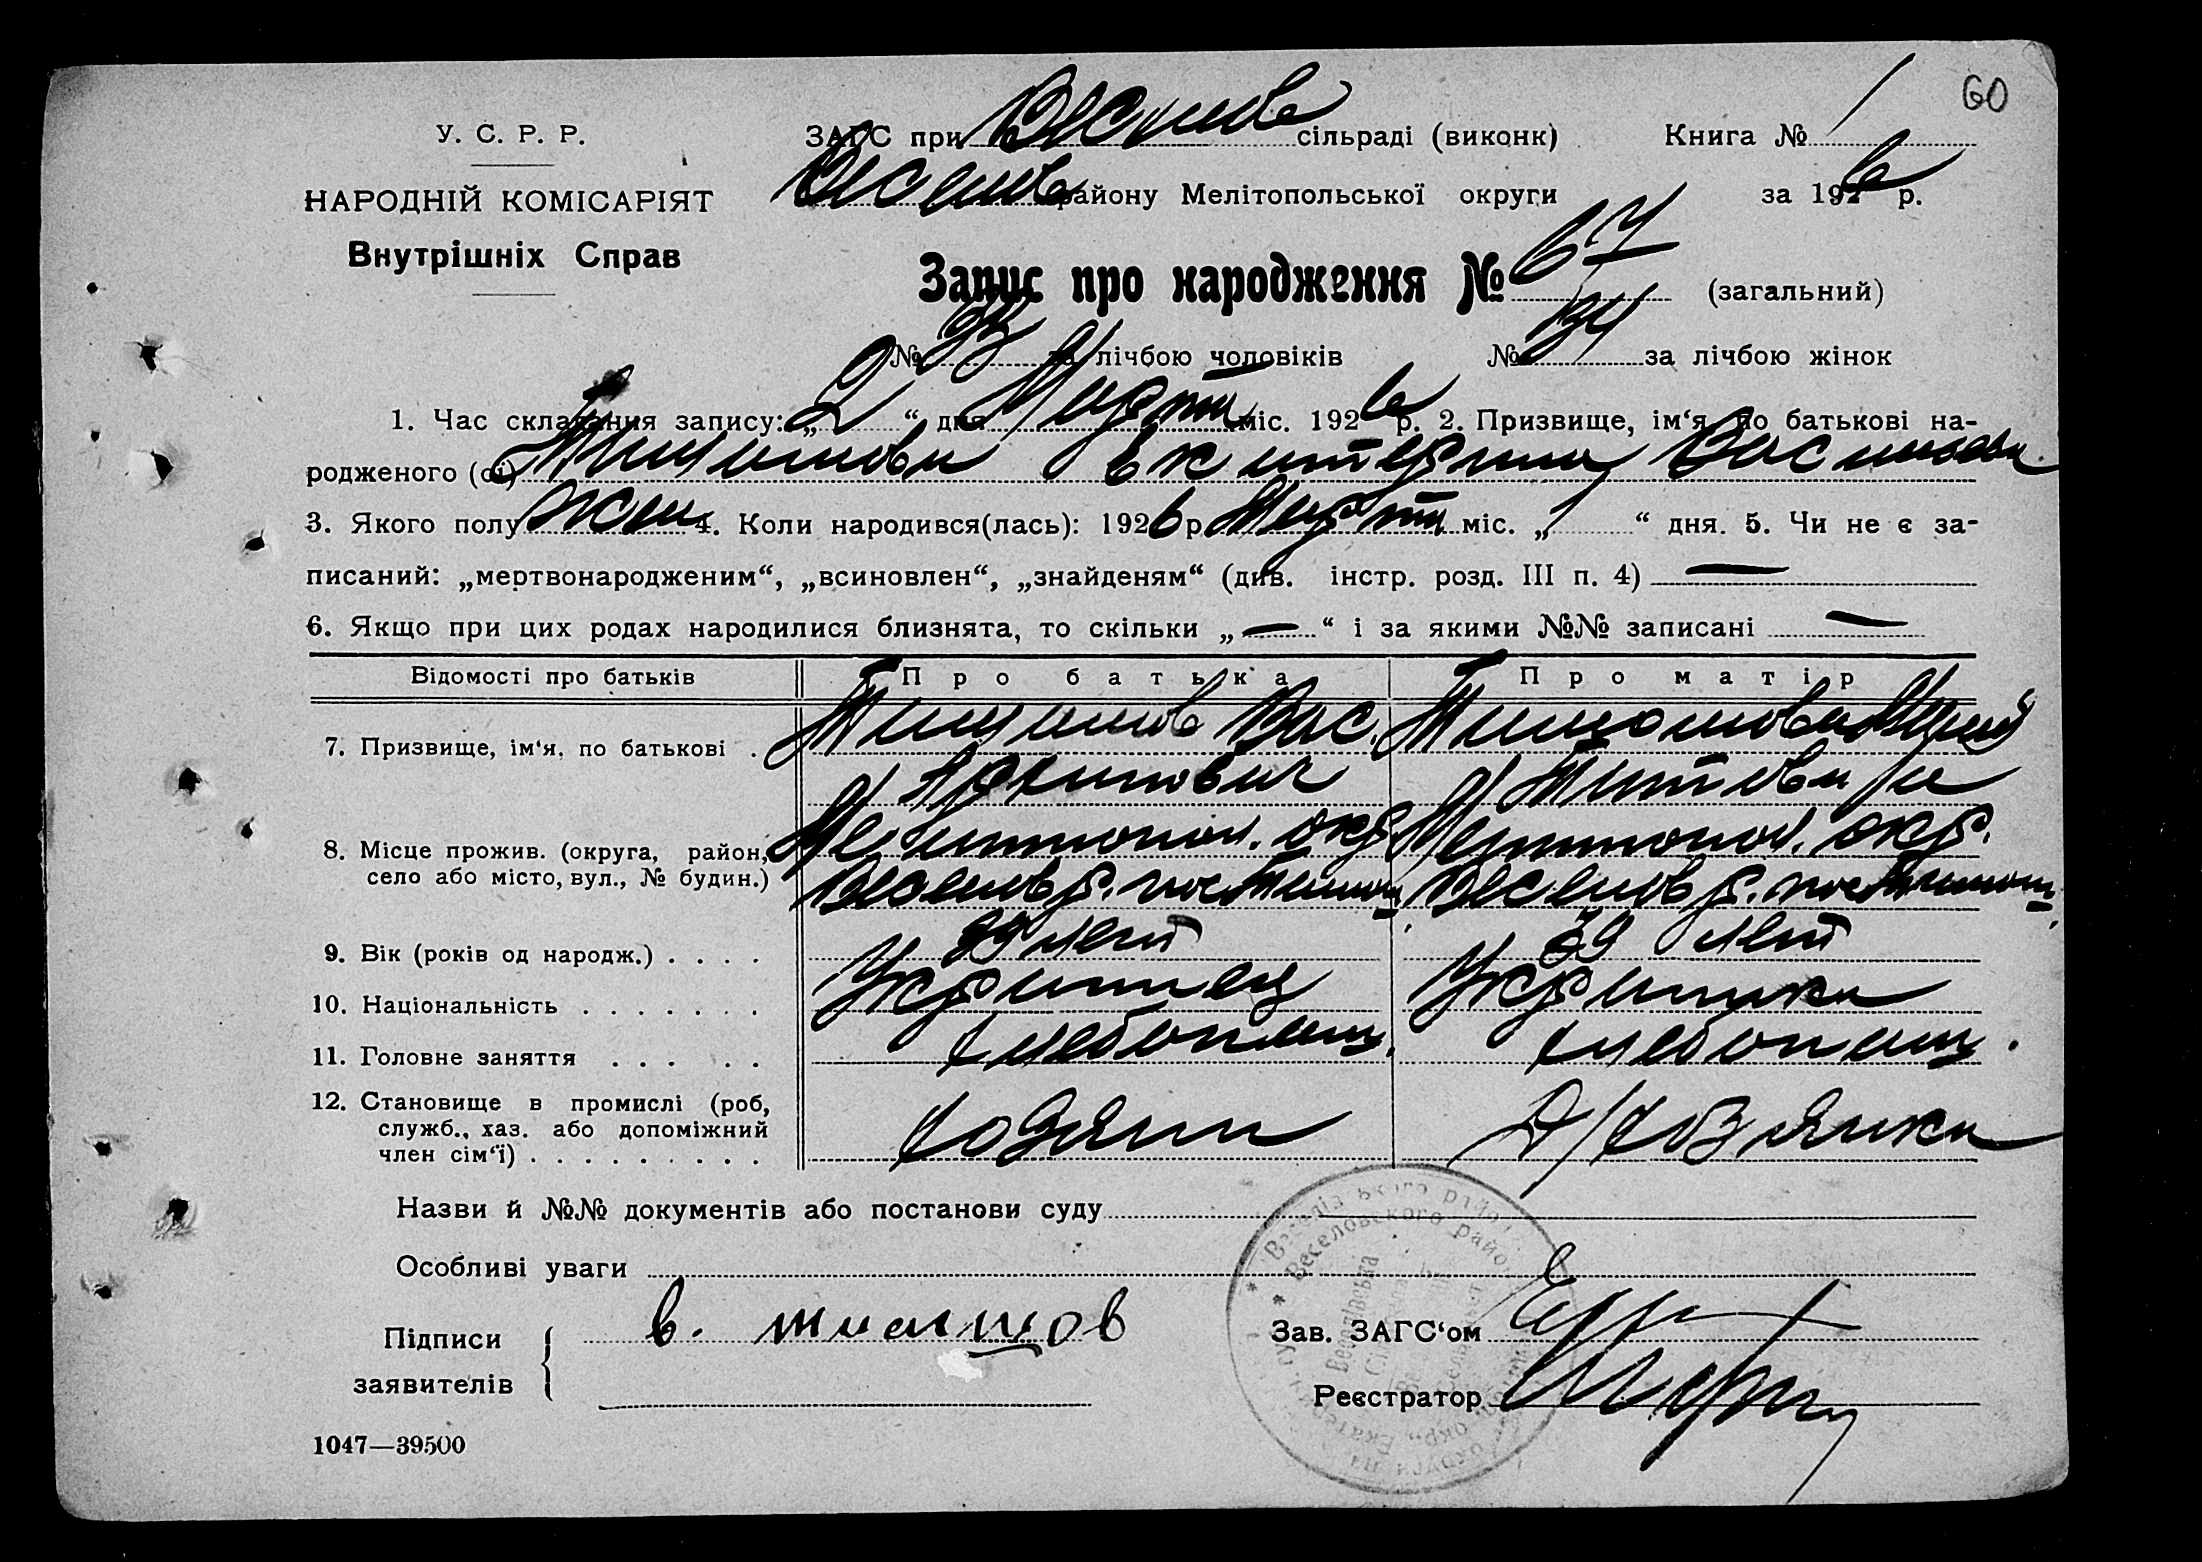 60
У. С. Р. Р.
НАРОДНІЙ КОМІСАРІЯТ
Внутрішніх Справ
ЗАГС при сільраді (виконк) Книга № 1
району Мелітопольської округи за 1926 р.
Запис про народження № 67 (загальний)
№ 33 за лічбою чоловіків № 34 за лічбою жінок
1. Час складання запису: „2“ дня Марта міс. 1926 р. 2. Призвище, ім‘я, по батькові на-
родженого (ої) Екатерина
3. Якого полу жен 4. Коли народився(лась): 1926 р. Март міс. „1“ дня. 5. Чи не є за-
писаний: „мертвонародженим“, „всиновлен“, „знайденям“ (див. інстр. розд. III п. 4) —
6. Якщо при цих родах народилися близнята, то скільки „—“ і за якими №№ записані —
Відомості про батьків Про батька Про матір
7. Призвище, ім‘я, по батькові . Вас. Мария
Архипович Титовна
8. Місце прожив. (округа, район, село або місто, вул., № будин.) Мелитопол. окр. Мелитопол. окр.
Веселов р. пос. Веселов р. пос.
9. Вік (років од народж.) . . . . 39 лет 39 лет
10. Національність . . . . . . . Украинец Украинка
11. Головне заняття . . . . . хлебопаш. хлебопаш.
12. Становище в промислі (роб, служб., хаз. або допоміжний член сім‘ї) . . . . . . . . . хозяин Д/хозяйка
Назви й №№ документів або постанови суду
Особливі уваги
Підписи заявителів В.
Зав. ЗАГС‘ом
Реєстратор
Веселовского район
1047—39500